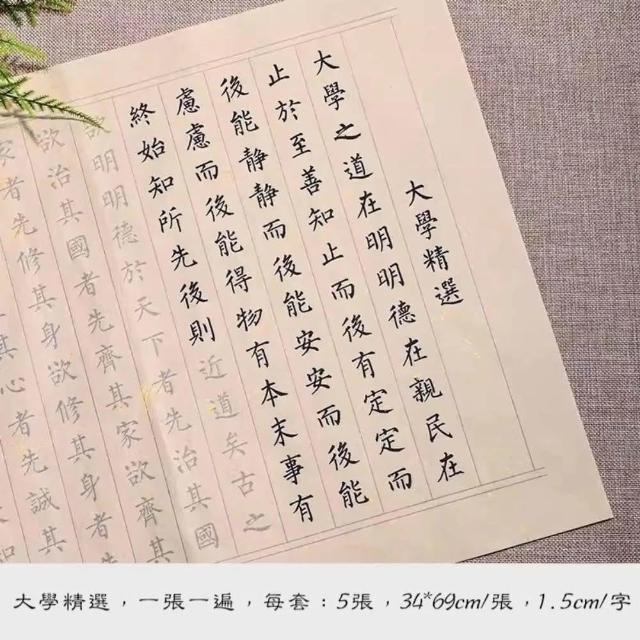 大學精選
大學之道在明明德在親民在
止於至善知止而後有定定而
後能静静而後能安安而後能
慮慮而後能得物有本末事有
終始知所先後則近道矣古之
欲明明德於天下者先治其國
欲治其國者先齊其家欲齊其
家者先修其身欲修其身者先
其心者先誠其
大學精選，一張一遍，每套：5張，34*69cm/張，1.5cm/字